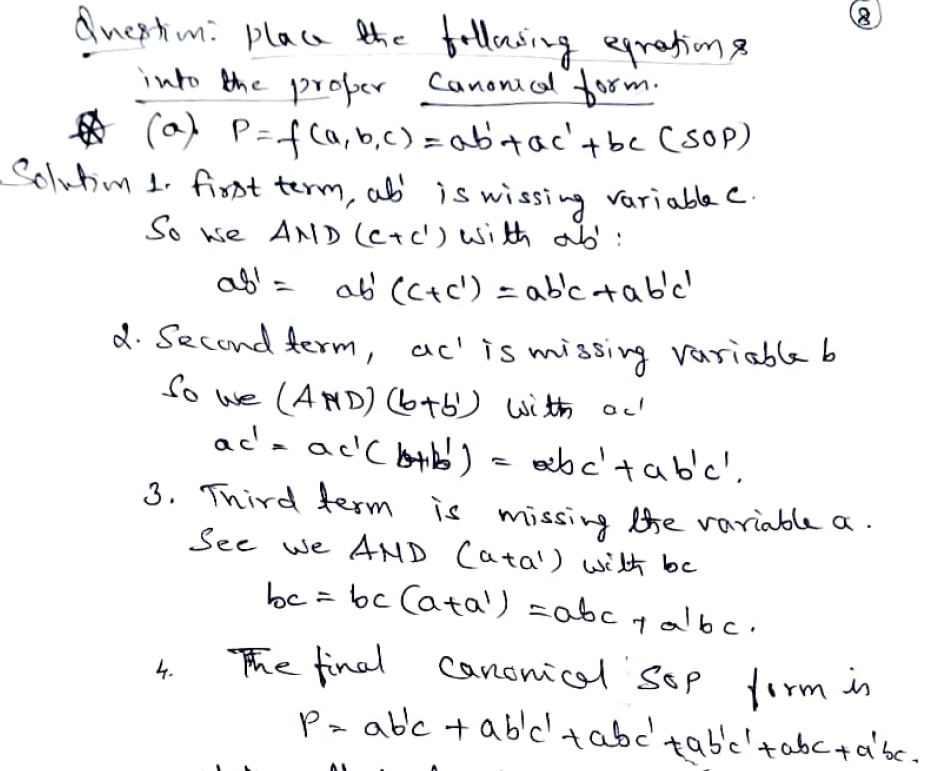 8
Question: place the following equations
into the proper canonical form.
(a) P=f(a,b,c)=ab'+ac'+bc (SOP)
Solution 1. first term, ab' is missing variable c.
So we AND (c+c') with ab' :
ab' = ab' (c+c') = ab'c+ab'c'
2. Second term, ac' is missing variable b
So we (AND) (b+b') with ac'
ac' = ac'(b+b') = abc'+ab'c'.
3. Third term is missing the variable a.
See we AND (a+a') with bc
bc = bc (a+a') =abc + a'bc.
4. The final canonical SOP form is
P= ab'c + ab'c'+abc'+ab'c'+abc+a'bc.